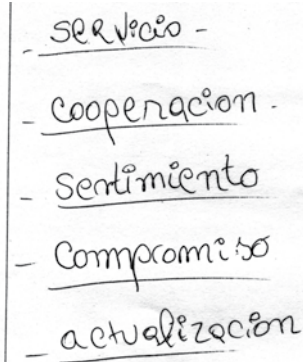 - servicio -
- cooperacion -
- sentimiento
- compromiso
- actualizacion